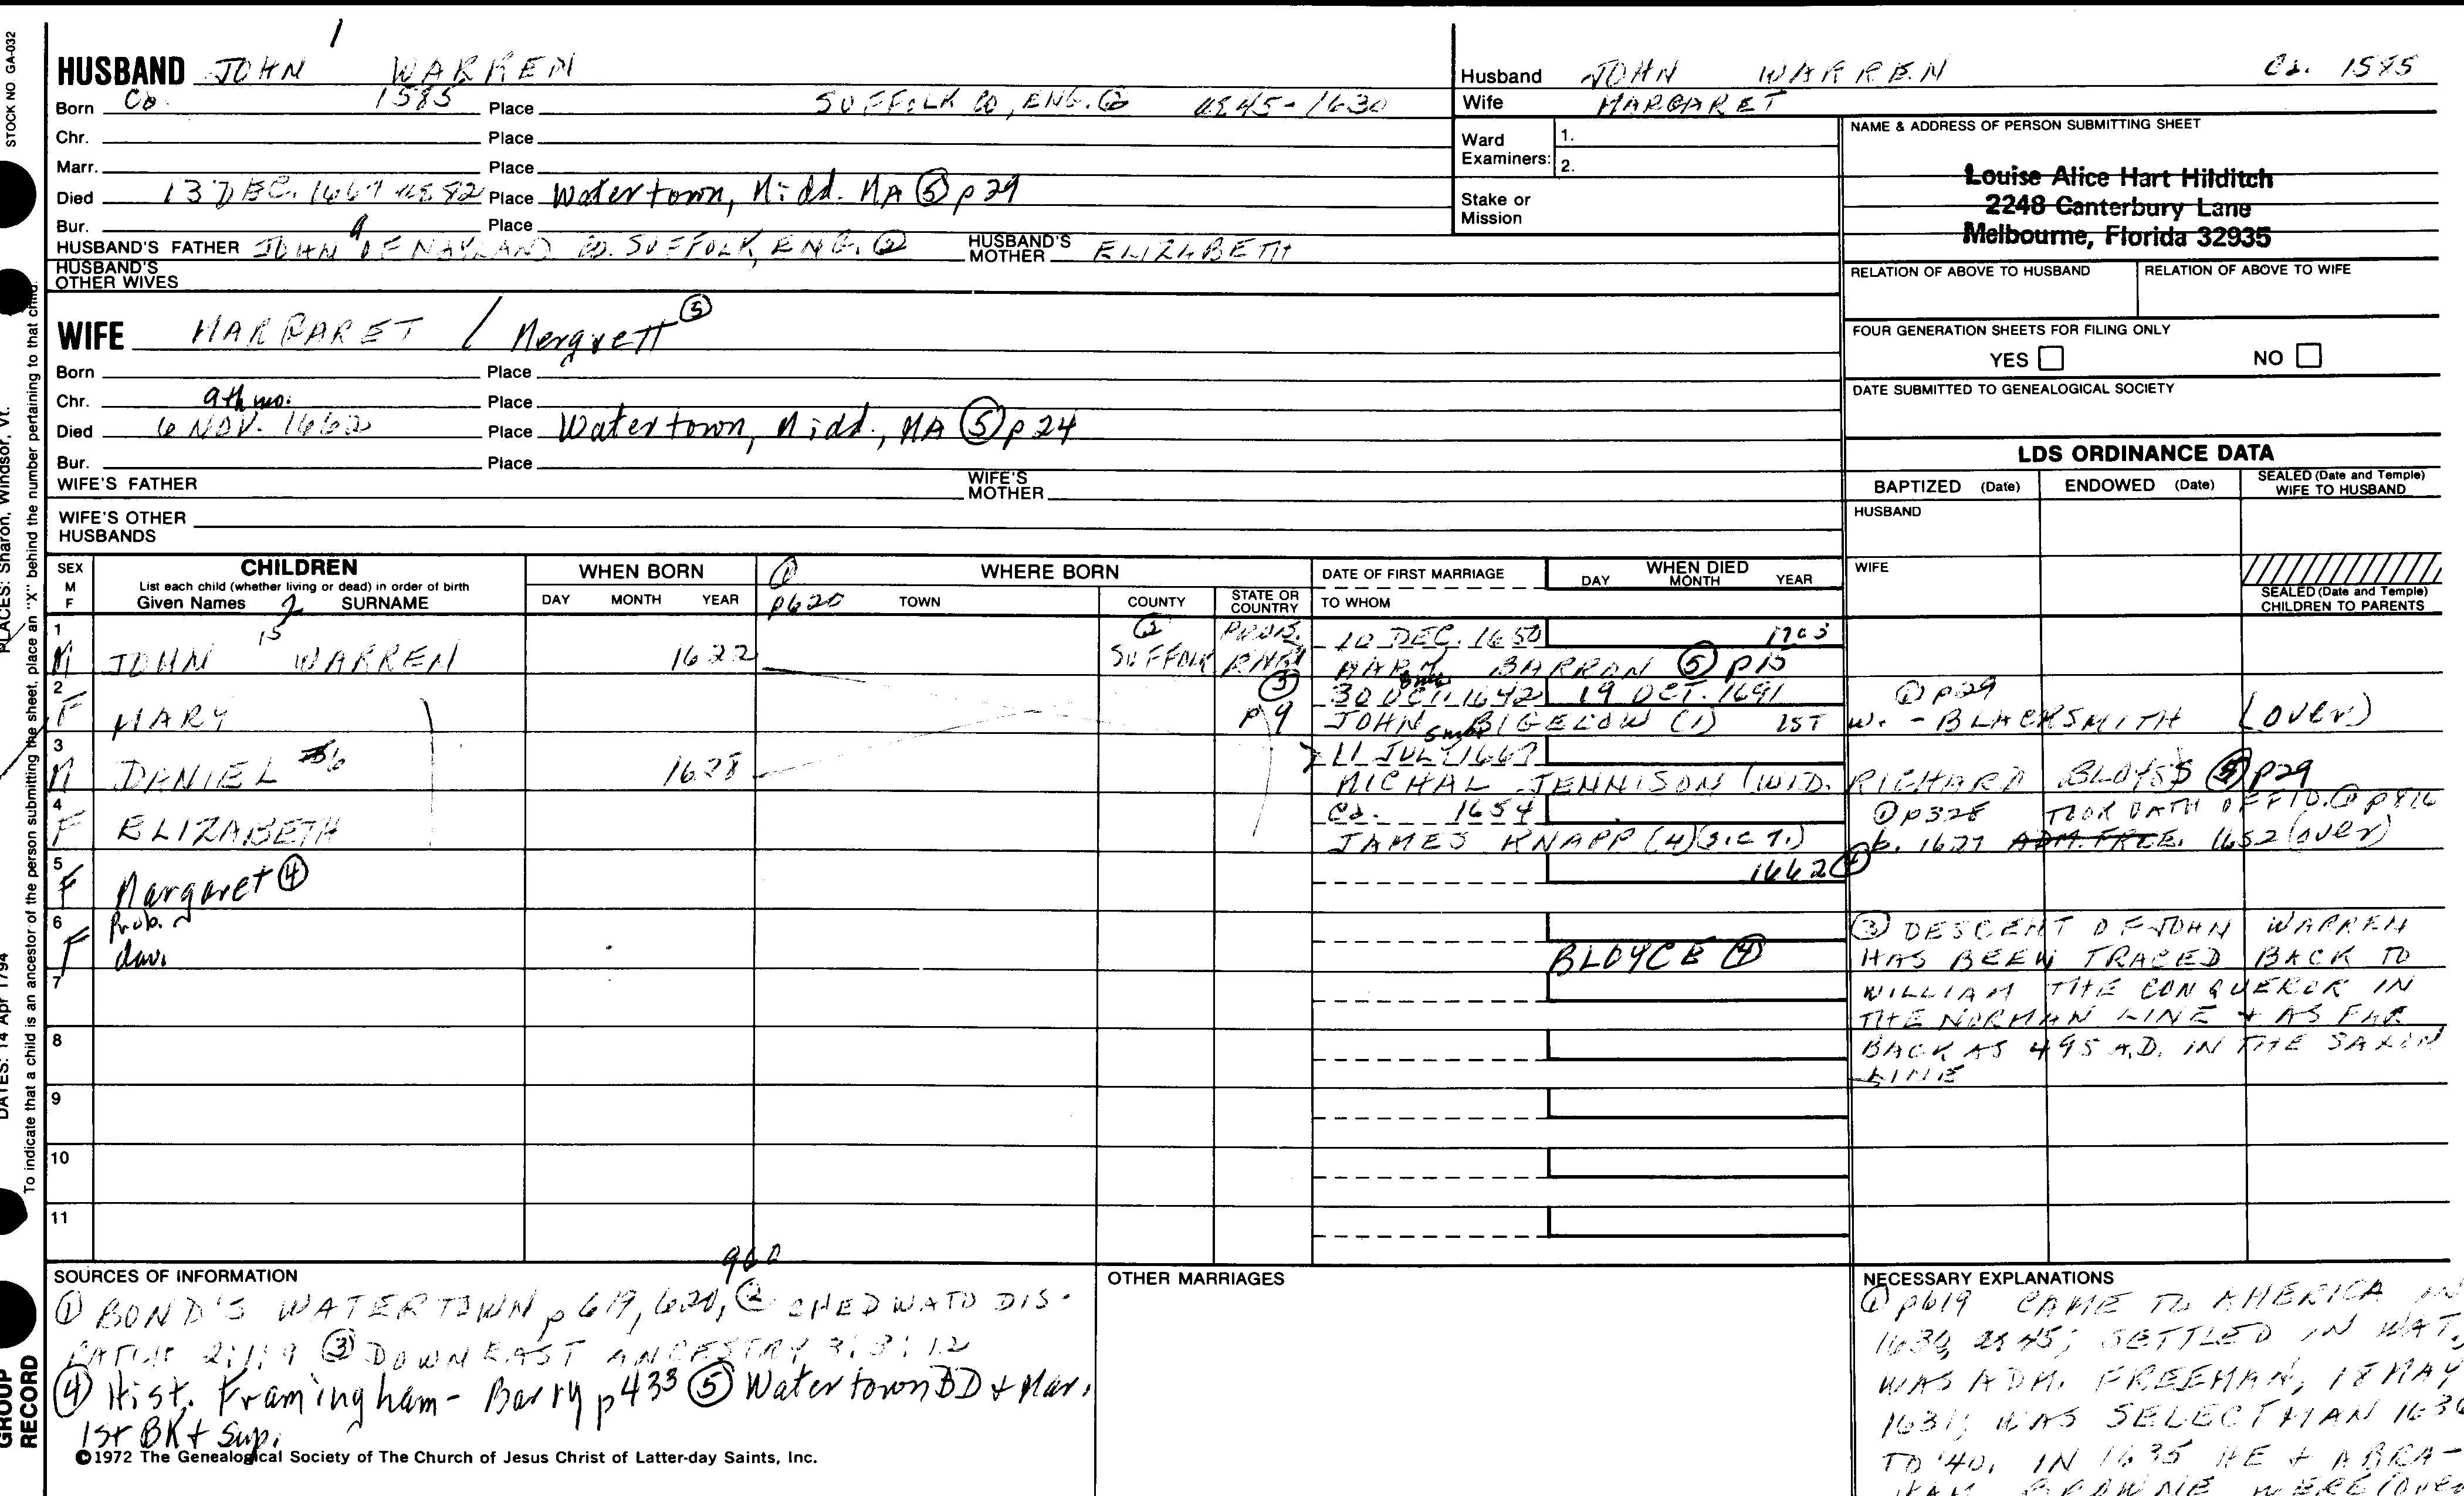 1
HUSBAND JOHN WARREN
Born Ca. 1585 Place SUFFOLK CO, ENG. ② æ 45-1630
Chr. Place
Marr. Place
Died 13 DEC. 1667 æ 82 Place Watertown, Midd. MA ⑤ p 29
Bur. Place
HUSBAND'S FATHER JOHN OF NAYLAND CO. SUFFOLK, ENG. ② HUSBAND'S MOTHER ELIZABETH
HUSBAND'S OTHER WIVES
WIFE MARGARET / Mergrett ⑤
Born Place
Chr. 9th mo. Place
Died 6 NOV. 1662 Place Watertown, Midd., MA ⑤ p 24
Bur. Place
WIFE'S FATHER WIFE'S MOTHER
WIFE'S OTHER HUSBANDS
Husband JOHN WARREN Ca. 1585
Wife MARGARET
Ward Examiners: 1.
2.
Stake or Mission
NAME & ADDRESS OF PERSON SUBMITTING SHEET
Louise Alice Hart Hilditch
2248 Canterbury Lane
Melbourne, Florida 32935
RELATION OF ABOVE TO HUSBAND RELATION OF ABOVE TO WIFE
FOUR GENERATION SHEETS FOR FILING ONLY
YES NO
DATE SUBMITTED TO GENEALOGICAL SOCIETY
LDS ORDINANCE DATA
BAPTIZED (Date) ENDOWED (Date) SEALED (Date and Temple) WIFE TO HUSBAND
HUSBAND
WIFE
SEALED (Date and Temple) CHILDREN TO PARENTS
SEX M F CHILDREN WHEN BORN ① WHERE BORN DATE OF FIRST MARRIAGE WHEN DIED
List each child (whether living or dead) in order of birth
Given Names 2 SURNAME DAY MONTH YEAR p620 TOWN COUNTY STATE OR COUNTRY TO WHOM DAY MONTH YEAR
1 15 ② PROB. 10 DEC. 1650 1703
M JOHN WARREN 1622 SUFFOLK ENG MARY BARRON ⑤ p 15
2 ③ 30 OCT. 1642 19 OCT. 1691 ① p29
F MARY p 9 JOHN BIGELOW (1) 1ST w. - BLACKSMITH (over)
3 11 JULY 1667
M DANIEL 6 1628 MICHAL JENNISON (WID. RICHARD BLOYSS ⑤ p29
4 Ca. 1654 ① p328 TOOK OATH OF FID. ① p816
F ELIZABETH JAMES KNAPP (4) b. 1627 ADM. FREE. 1652 (over)
5 1662 ④
F Margaret ④
6 Prob.
F dau. BLOYCE ④
7
8
9
10
11
③ DESCENT OF JOHN WARREN
HAS BEEN TRACED BACK TO
WILLIAM THE CONQUEROR IN
THE NORMAN LINE + AS FAR
BACK AS 495 A.D. IN THE SAXON
LINE
SOURCES OF INFORMATION
960
① BOND'S WATERTOWN p 619, 620, ② CHEDWATO DIS-
PATCH 2:1:9 ③ DOWN EAST ANCESTRY 3:3:12
④ Hist. Framingham - Barry p 433 ⑤ Watertown BD + Mar.
1st BK + Sup.
©1972 The Genealogical Society of The Church of Jesus Christ of Latter-day Saints, Inc.
OTHER MARRIAGES
NECESSARY EXPLANATIONS
① p619 CAME TO AMERICA IN
1630, æ 45; SETTLED IN WAT,
WAS ADM. FREEMAN, 18 MAY
1631; WAS SELECTMAN 1636
TO '40. IN 1635 HE + ABRA-
HAM BROWNE WERE (over
STOCK NO GA-032
PLACES: Sharon, Windsor, Vt.
To indicate that a child is an ancestor of the person submitting the sheet, place an "X" behind the number pertaining to that child.
DATES: 14 Apr 1794
GROUP
RECORD